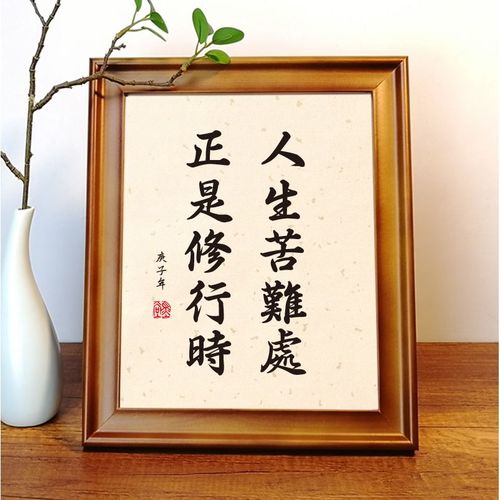 人生苦難處
正是修行時
庚子年